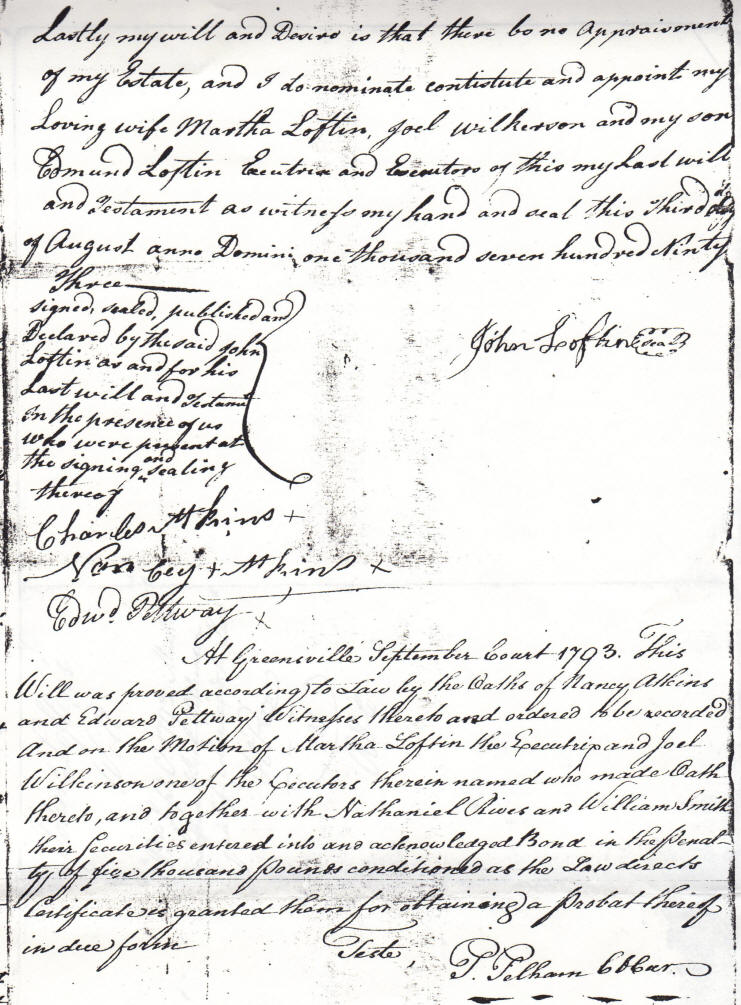 Lastly my will and Desire is that there be no Appraisement
of my Estate, and I do nominate contistute and appoint my
Loving wife Martha Loftin, Joel Wilkerson and my son
Edmund Loftin Executrix and Executors of this my Last will
and Testament as witness my hand and seal this Third day
of August anno Domini one thousand seven hundred Ninty
Three
signed, sealed, published and
Declared by the said John
Loftin as and for his
Last will and Testamt
In the presence of us
who were present at
the signing and sealing
thereof
John Loftin seal
Charles Atkins +
Nancey + Atkins +
Edwd Pettway +
At Greensville September Court 1793. This
Will was proved according to Law by the Oaths of Nancy Atkins
and Edward Pettway Witnesses thereto and ordered to be recorded
And on the Motion of Martha Loftin the Executrix and Joel
Wilkinson one of the Executors therein named who made Oath
thereto, and together with Nathaniel Rives and William Smith
their Securities entered into and acknowledged Bond in the Penal-
ty of five thousand Pounds conditioned as the Law directs
Certificate is granted them for obtaining a Probat thereof
in due form
Teste,
P. Pelham Cl Cur.